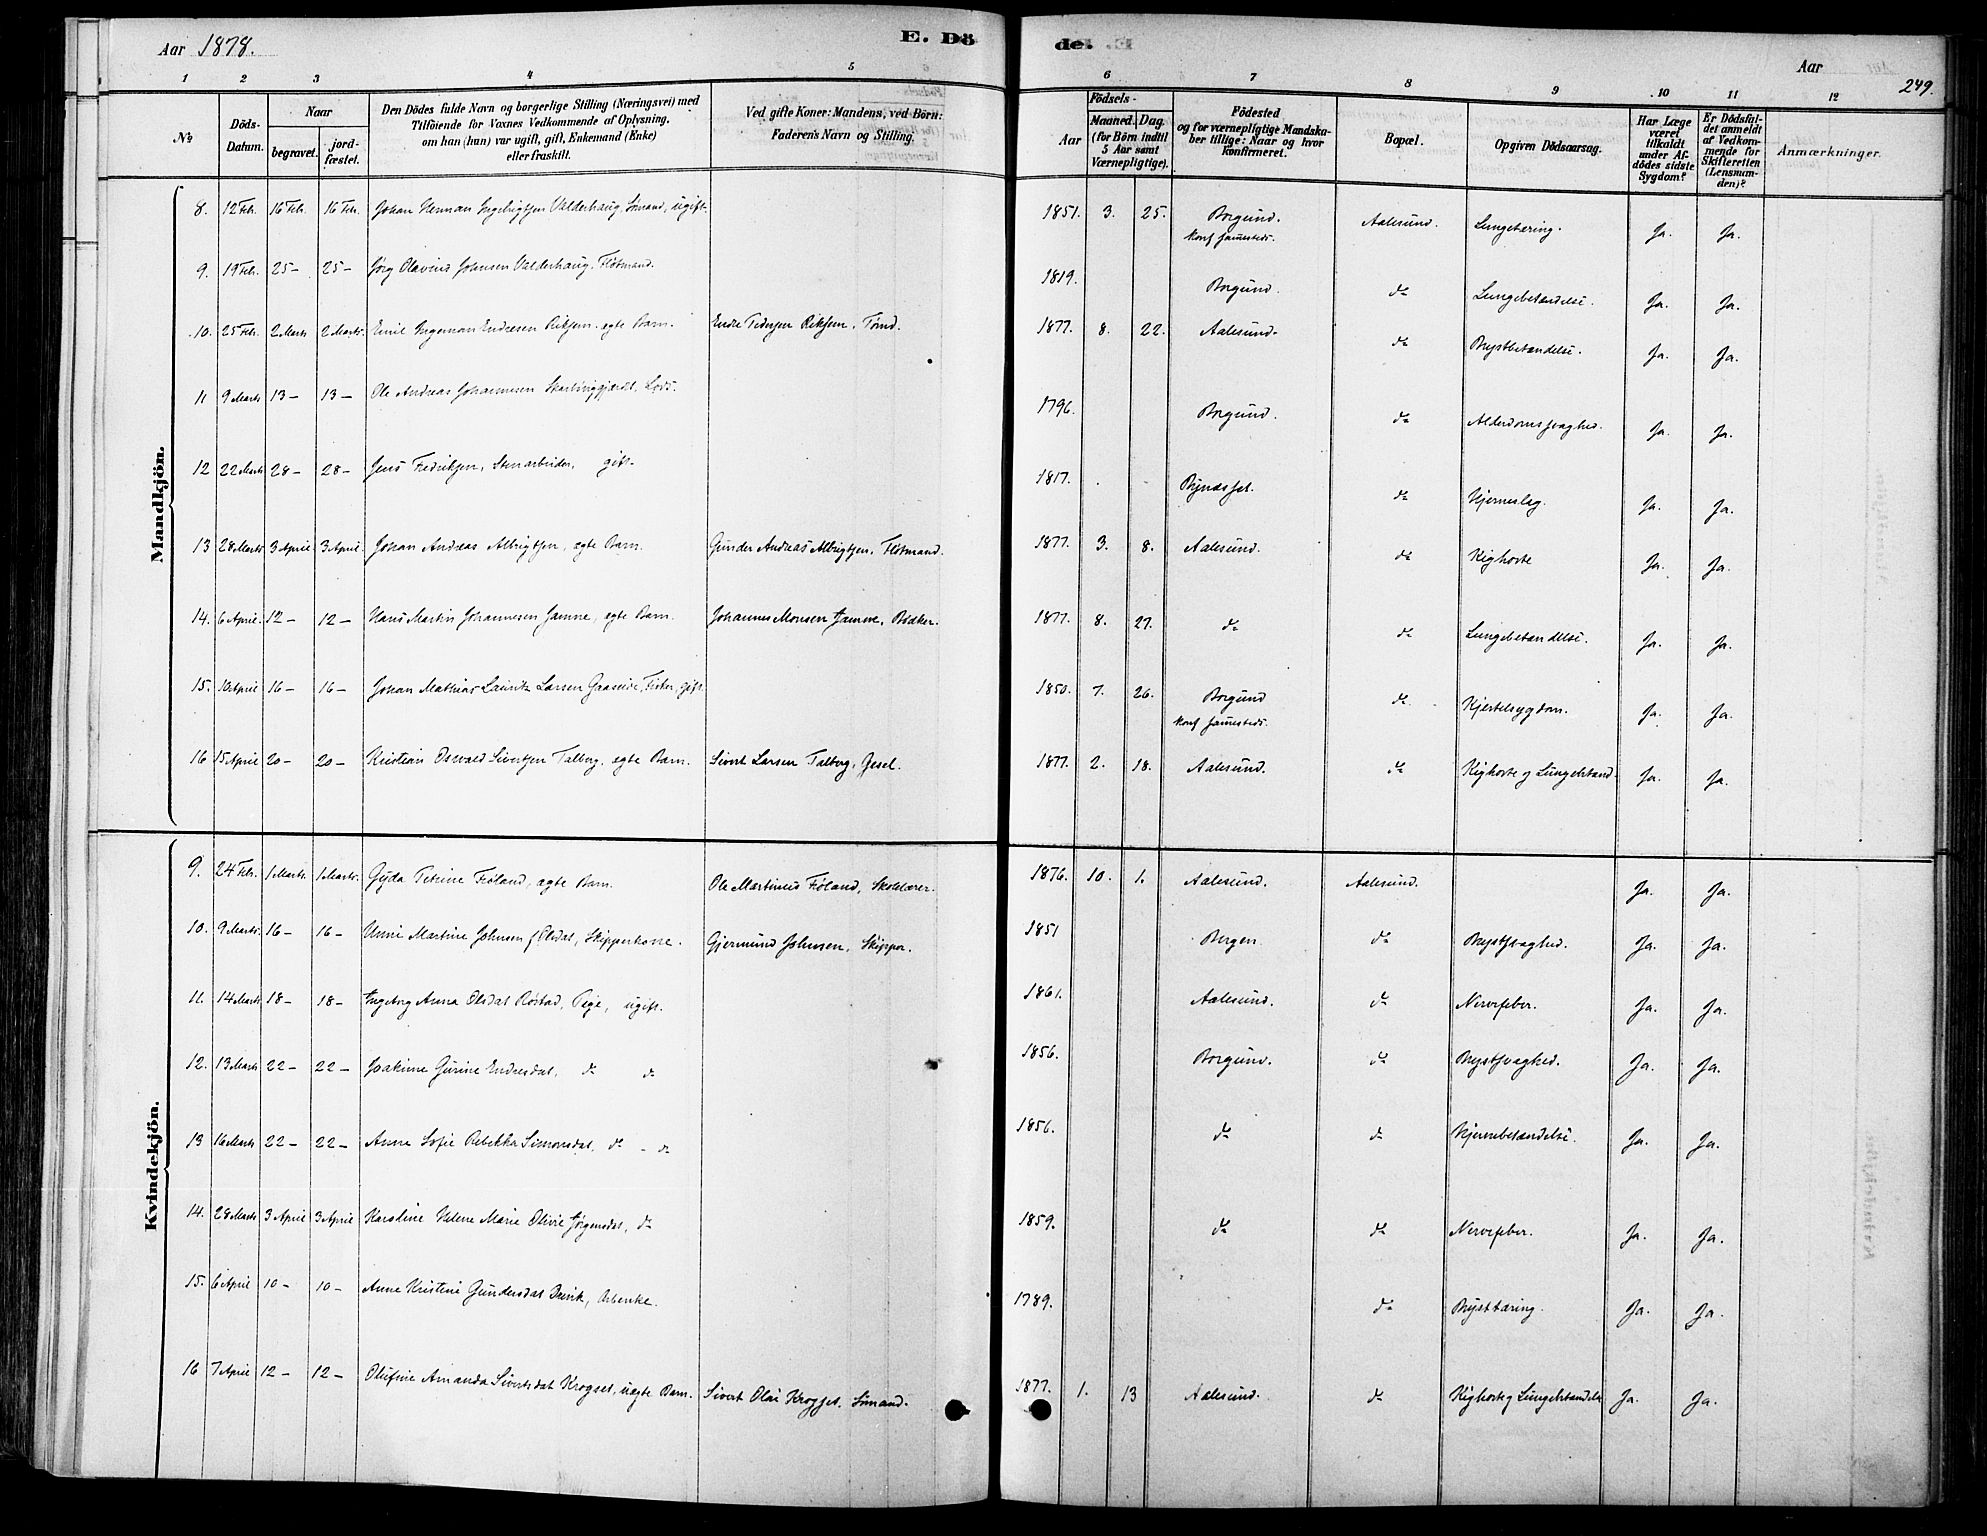 Aar 1878. E. Dö de. Aar 249.
1 2 3 4 5 6 7 8 9 10 11 12
No Döds-Datum. Naar begravet. jordfæstet. Den Dödes fulde Navn og borgerlige Stilling (Næringsvei) med Tilföiende for Voxnes Vedkommende af Oplysning, om han (hun) var ugift, gift, Enkemand (Enke) eller fraskilt. Ved gifte Koner: Mandens, ved Börn: Faderens Navn og Stilling. Aar Födsels- Maaned. Dag. (for Börn indtil 5 Aar samt Værnepligtige). Födested og for værnepligtige Mandskaber tillige: Naar og hvor konfirmeret. Bopæl. Opgiven Dödsaarsag. Har Læge været tilkaldt under Afdödes sidste Sygdom? Er Dödsfaldet anmeldt af Vedkommende for Skifteretten (Lensmanden)? Anmærkninger.
Mandkjön.
8. 12 Feb. 16 Feb. 16 Feb. Johan Herman Ingebrigtsen Valderhaug, Sömand, ugift. 1851. 3. 25. Borgund. Konf sammesteds. Aalesund. Lungetæring. Ja. Ja.
9. 19 Feb. 25 - 25 - Jörg Olavius Johnsen Valderhaug, Flötmand. 1819. Borgund. do Lungebetændelse. Ja. Ja.
10. 25 Feb. 2 Marts 2 Marts. Emil Ingeman Endresen Riksen, egte Barn. Endre Pedersen Riksen, Tömd. 1877. 8. 22. Aalesund. do Brystbetændelse. Ja. Ja.
11 9 Marts 13 - 13 - Ole Andreas Johannesen Lods. 1796. Borgund. do Alderdomssvaghed. Ja. Ja.
12 22 Marts 28 - 28 - Jens Fredriksen, Stenarbeider, gift. 1817. Byndsset. do Hjerneslag. Ja. Ja.
13 28 Marts 3 April 3 April. Johan Andreas Albrigtsen, egte Barn. Gunder Andreas Albrigtsen, Flötmand. 1877. 3. 8. Aalesund. do Kighoste Ja. Ja.
14. 6 April. 12 - 12 - Hans Martin Johannesen Jamne, egte Barn. Johannes Monsen Jamne, Bödker. 1877. 8. 27. do do Lungebetændelse. Ja. Ja.
15. 10 April 16 - 16 - Johan Mathias Lauritz Larsen Graseide, Fisker, gift. 1850. 7. 26. Borgund Konf sammesteds. do Kjertelsygdom. Ja. Ja.
16 15 April 20 - 20 - Kristian Osvald Sivertsen Talberg, egte Barn. Sivert Larsen Talberg, Gesel. 1877. 2. 18. Aalesund. do Kighoste og Lungebetænd. Ja. Ja.
Kvindekjön.
9. 24 Feb. 1 Marts 1 Marts. Gyda Petrine Fröland, egte Barn. Ole Martinus Fröland, Skolelærer. 1876. 10. 1. Aalesund. Aalesund. Ja. Ja.
10. 9 Marts. 16 - 16 - Unni Martine Johnsen f Olsdat, Skipperkone. Gjermund Johnsen, Skipper. 1851 Bergen. do Brystsvaghed. Ja. Ja.
11. 14 Marts 18 - 18 - Ingeborg Anna Olsdat Röstad, Pige, ugift. 1861. Aalesund. do Nervefeber. Ja. Ja.
12. 13 Marts 22 - 22 - Joakime Gurine Endresdat, do do 1856. Borgund. do Brystsvaghed. Ja. Ja.
13 16 Marts 22 - 22 - Anne Sofie Rebekka Simonsdat, do - do 1856. do do Hjernebetændelse. Ja. Ja.
14. 28 Marts 3 April 3 April Karoline Helene Marie Olivie Jörgensdat, do 1859. do do Nervefeber. Ja. Ja.
15. 6 April 10 - 10 - Anne Kristine Gundersdat Arbenke. 1789. do Brysttæring. Ja. Ja.
16 7 April 12 - 12 - Olufine Amanda Sivertsdat Krogset, uægte Barn. Sivert Olai Krogset, Sömand. 1877. 1. 13 Aalesund. do Kighoste og Lungebetændelse Ja. Ja.